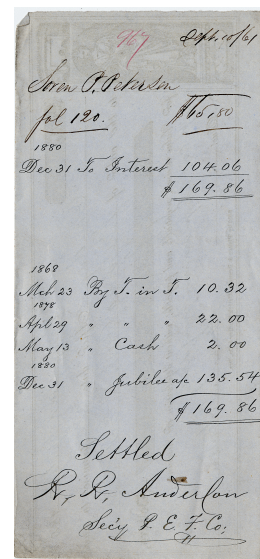 967
Sept. 10/61
Soren P. Petersen
fol 120. $65,80
1880
Dec 31 To Interest 104.06
$169.86
1868
Mch 23 By T. in T. 10.32
1878
Apl 29 " " " 22.00
May 13 " Cash 2.00
1880
Dec 31 " Jubilee a/c 135.54
$169.86
Settled
R, R, Anderson
Sec'y P. E. F. Co;